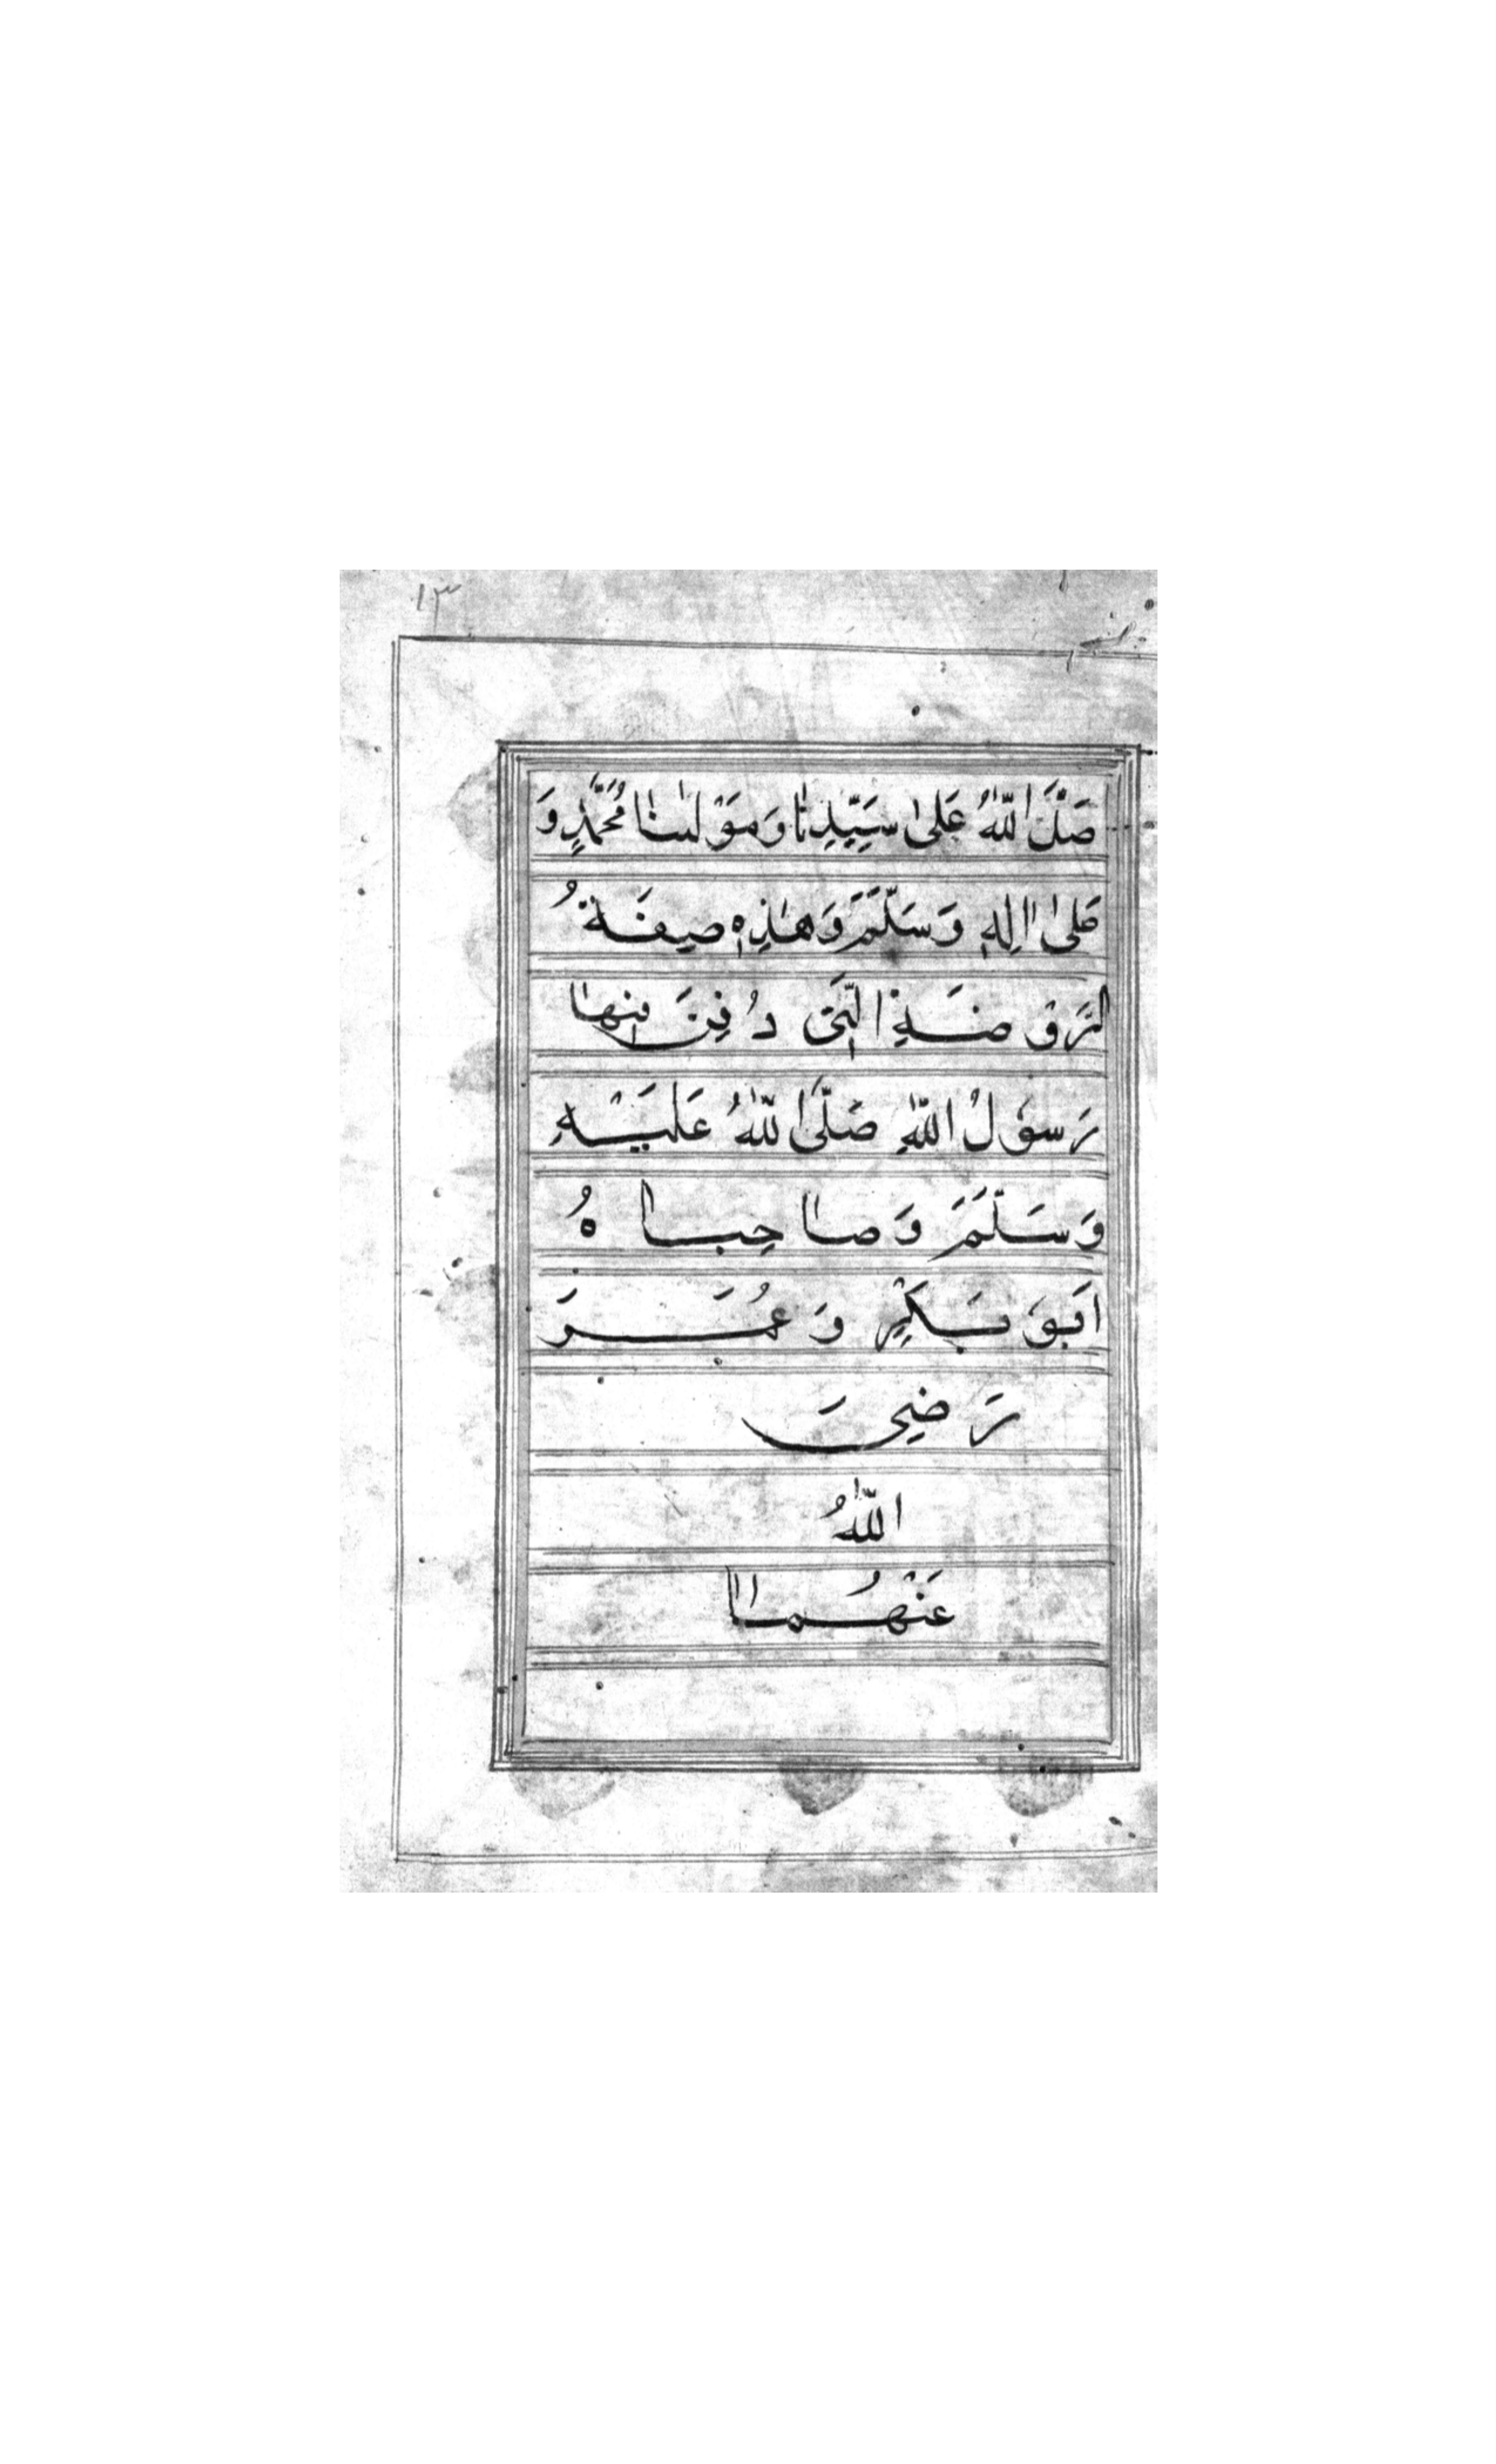 ١٣
صَلَّى اللّٰهُ عَلىٰ سَيِّدِنَا وَمَوْلٰىنَا مُحَمَّدٍ وَ
عَلىٰ اٰلِهٖ وَسَلَّمَ وَهٰذِهٖ صِفَةُ
الرَّوْضَةِ الَّتِىْ دُفِنَ فِيْهَا
رَسُوْلُ اللّٰهِ صَلَّى اللّٰهُ عَلَيْهِ
وَسَلَّمَ وَصَاحِبَاهُ
اَبُوْ بَكْرٍ وَعُمَرَ
رَضِىَ
اللّٰهُ
عَنْهُمَا